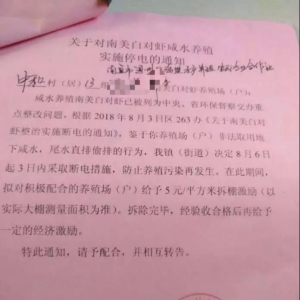 关于对南美白对虾咸水养殖
实施停电的通知
中和村(居)
白对虾养殖场(户)为
咸水养殖南美白对虾已被列为中央、省环保督察交办重
点整改问题。根据2018年8月3日区263办《关于南美白对
虾整治实施断电的通知》,鉴于你养殖场(户)非法取用地
下咸水,尾水直接偷排的行为,我镇(街道)决定8月6日
起3日内采取断电措施,防止养殖污染再发生。在此期间,
拟对积极配合的养殖场(户)给予5元/平方米拆棚激励(以
实际大棚测量面积为准)。拆除完毕,经验收合格后再给予
一定的经济激励。
特此通知,请予配合,并相互转告。